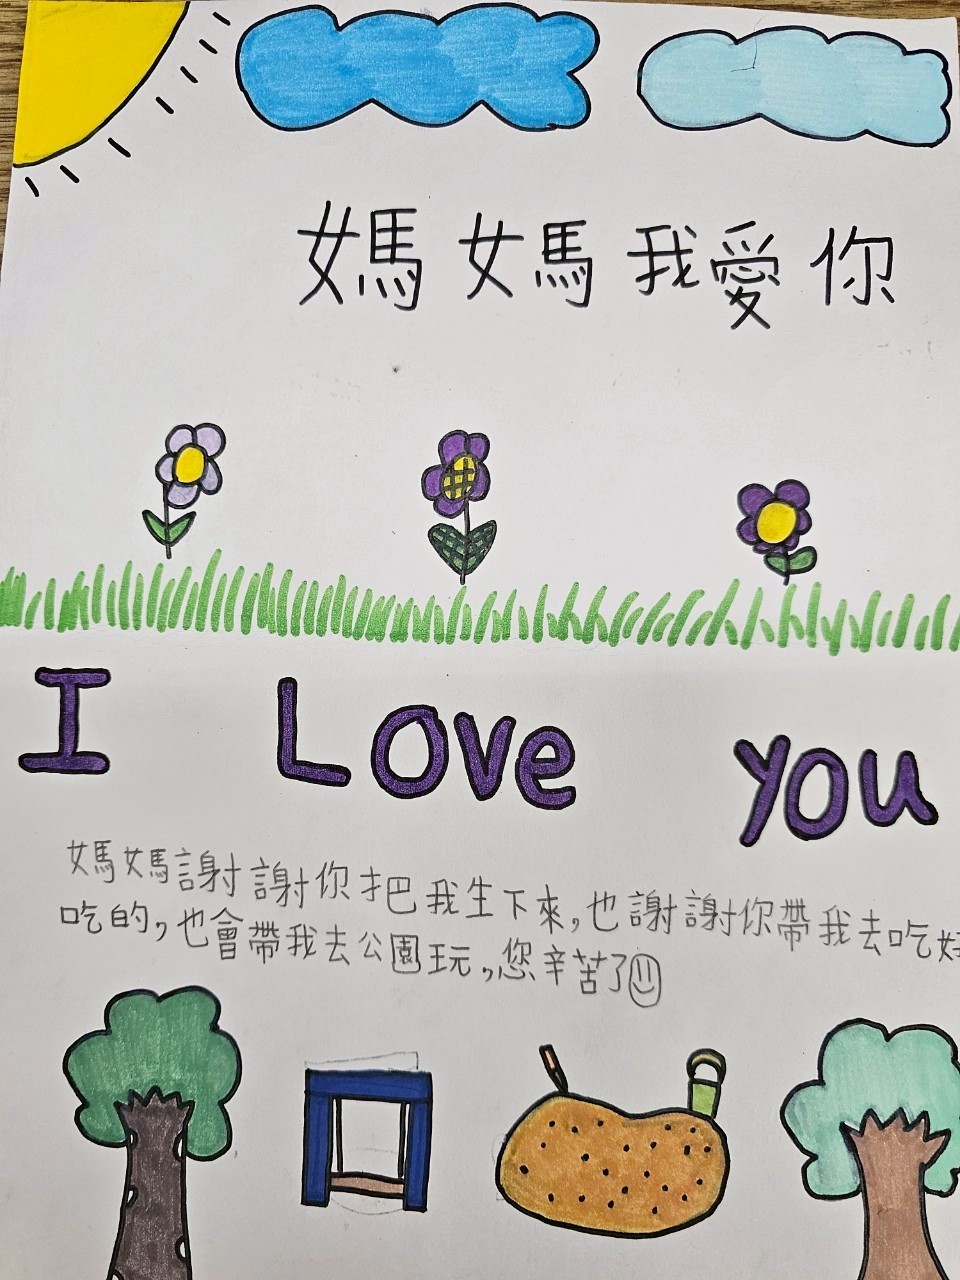 媽媽我愛你
I Love you
媽媽謝謝你把我生下來,也謝謝你帶我去吃好
吃的,也會帶我去公園玩,您辛苦了